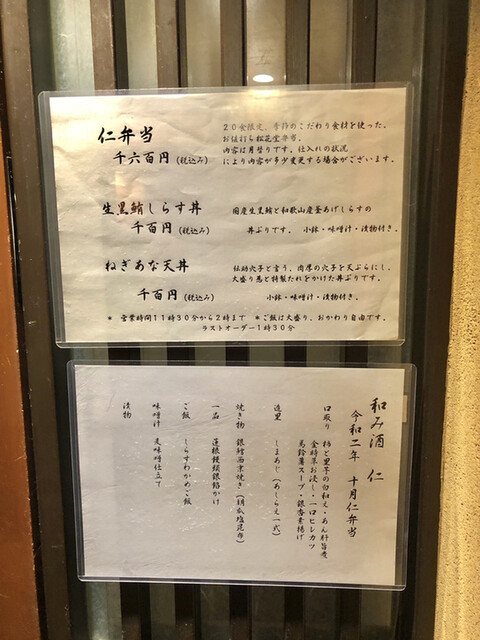 仁弁当
千六百円(税込み)
20食限定、季節のこだわり食材を使った、
お値打ち松花堂弁当。
内容は月替りです。仕入れの状況
により内容が多少変更する場合がございます。
生黒鮪しらす丼
千百円(税込み)
国産生黒鮪と和歌山産釜あげしらすの
丼ぶりです。 小鉢・味噌汁・漬物付き。
ねぎあな天丼
千百円(税込み)
伝助穴子と言う、肉厚の穴子を天ぷらにし、
大盛り葱と特製たれをかけた丼ぶりです。
小鉢・味噌汁・漬物付。
* 営業時間11時30分から2時まで *ご飯は大盛り、おかわり自由です。
ラストオーダー1時30分
和み酒 仁
令和二年 十月仁弁当
口取り 柿と里芋の白和え・あん肝旨煮
金時草お浸し・一口ヒレカツ
馬鈴薯スープ・銀杏素揚げ
造里 しまあじ(あしらえ一式)
焼き物 銀鱈西京焼き(胡瓜塩昆布)
一品 蓮根饅頭銀餡かけ
ご飯 しらすわかめご飯
味噌汁 麦味噌仕立て
漬物